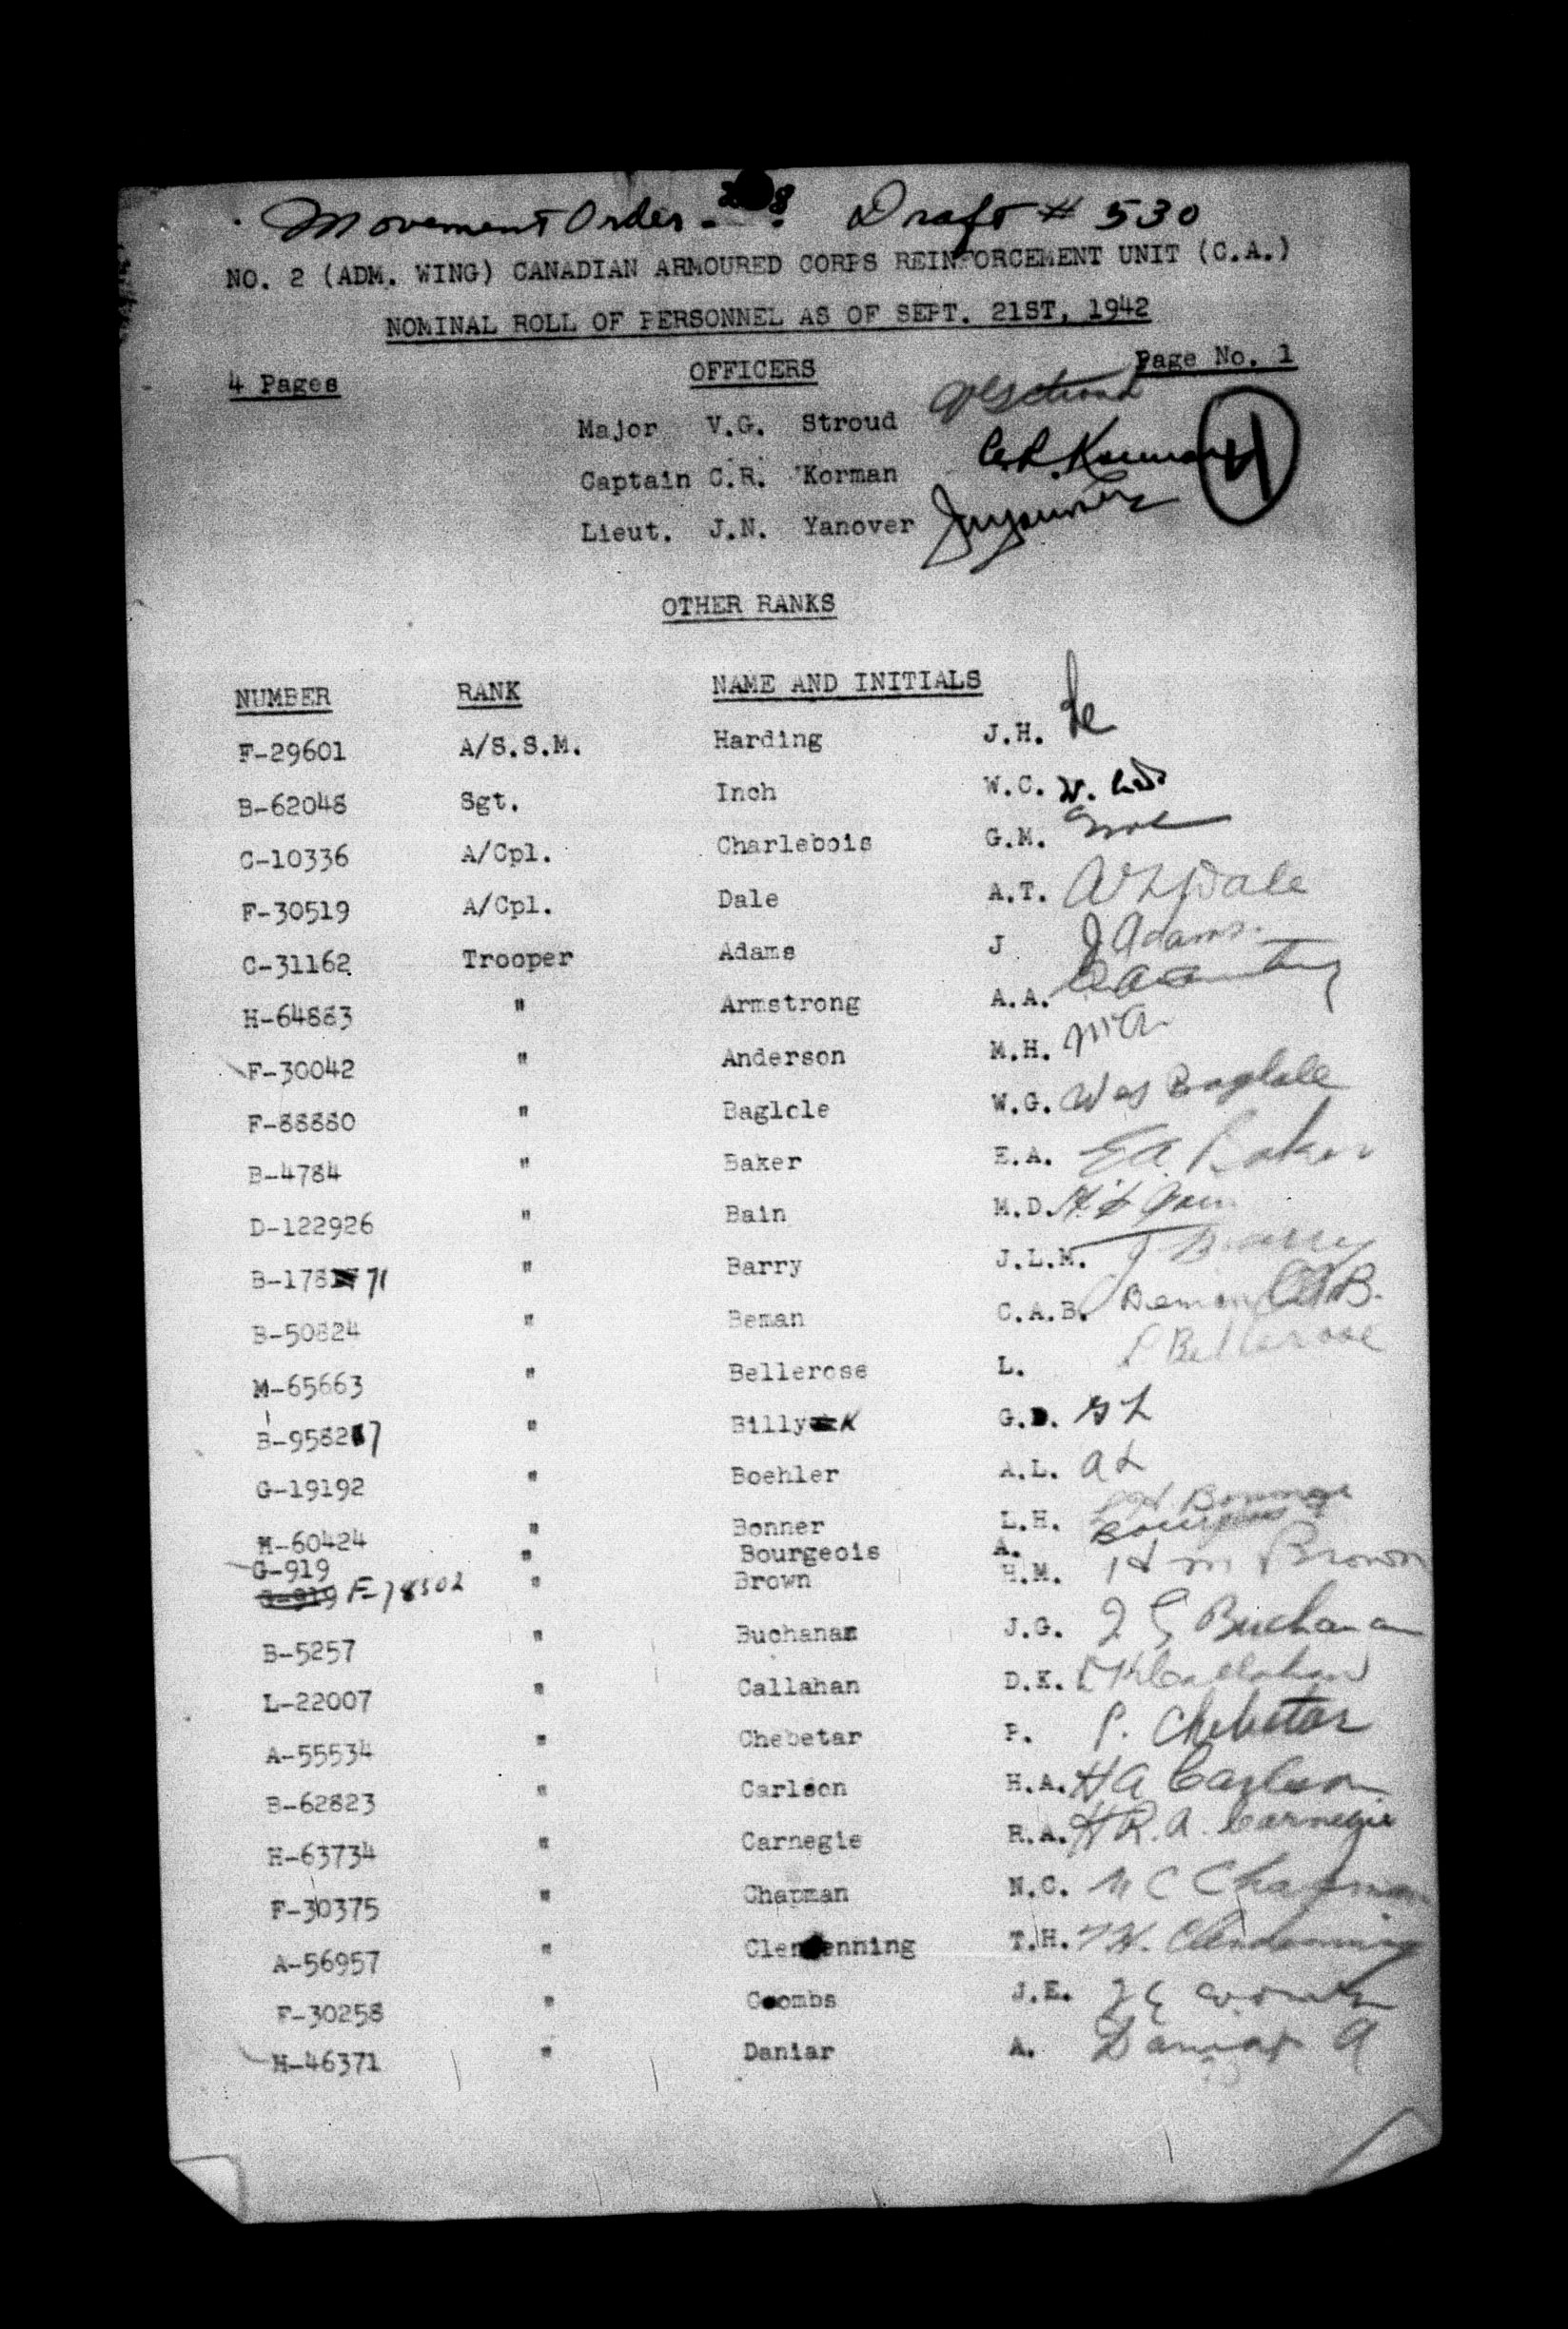 Movement Order - Draft # 530
NO. 2 (ADM. WING) CANADIAN ARMOURED CORPS REINFORCEMENT UNIT (C.A.)
NOMINAL ROLL OF PERSONNEL AS OF SEPT. 21ST, 1942
4 Pages OFFICERS Page No. 1
Major V.G. Stroud
Captain C.R. Korman C.R. Korman
Lieut. J.N. Yanover
OTHER RANKS
NUMBER RANK NAME AND INITIALS
F-29601 A/S.S.M. Harding J.H.
B-62048 Sgt. Inch W.C.
C-10336 A/Cpl. Charlebois G.M.
F-30519 A/Cpl. Dale A.T. A T Dale
C-31162 Trooper Adams J J Adams.
H-64883 " Armstrong A.A.
F-30042 " Anderson M.H.
F-88880 " Baglole W.G. W G Baglole
B-4784 " Baker E.A. E A Baker
D-122926 " Bain M.D.
B-178171 " Barry J.L.M. J Barry
B-50824 " Beman C.A.B. Beman C A B.
M-65663 " Bellerose L. L Bellerose
B-95827 " Billyk G.D.
G-19192 " Boehler A.L. A L
M-60424 " Bonner L.H. L H Bonner
G-919 " Bourgeois A. Bourgeois
G-919 F-78502 " Brown H.M. H M Brown
B-5257 " Buchanan J.G. J G Buchanan
L-22007 " Callahan D.K. D K Callahan
A-55534 " Chebetar P. P. Chebetar
B-62823 " Carlson H.A. H A Carlson
H-63734 " Carnegie R.A. H R. A. Carnegie
F-30375 " Chapman N.C. N C Chapman
A-56957 " Clendenning T.H. T H. Clendenning
F-30258 " Coombs J.E. J E Coombs
H-46371 " Daniar A. Daniar A